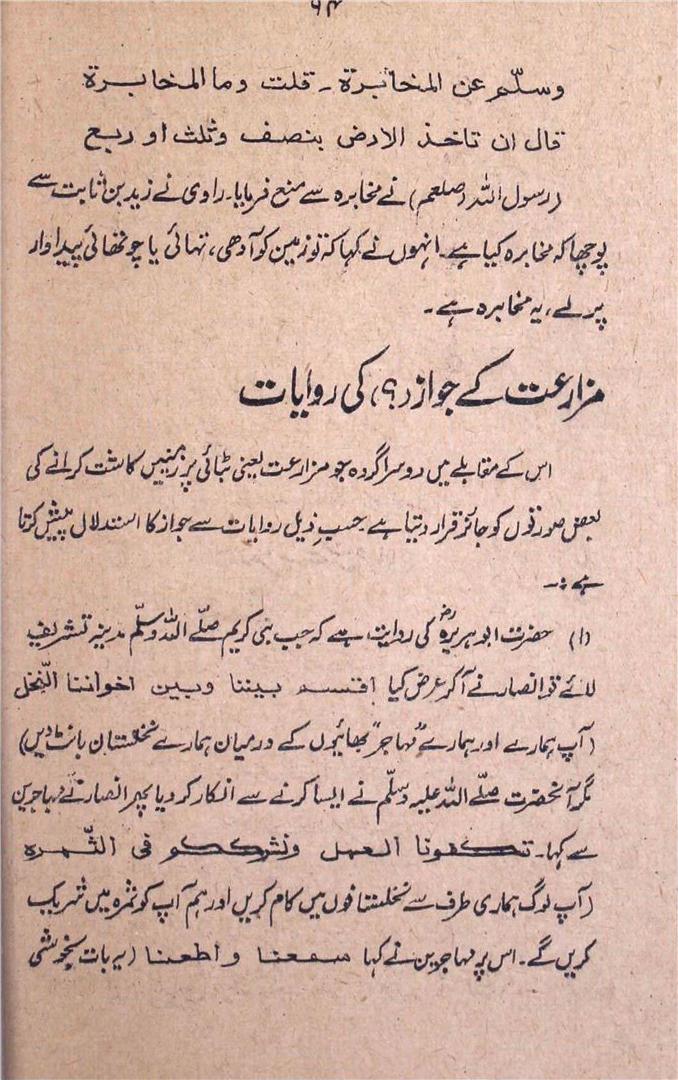 ۶۴
وسلّم عن المخابرة ـ قلت وما المخابرة
قال ان تاخذ الارض بنصف وثلث او ربع
(رسول اللہ (صلعم) نے مخابرہ سے منع فرمایا۔ راوی نے زید بن ثابت سے
پوچھا کہ مخابرہ کیا ہے۔ انہوں نے کہا کہ تو زمین کو آدھی، تہائی یا چوتھائی پیداوار
پر لے، یہ مخابرہ ہے۔
مزارعت کے جواز (؟) کی روایات
اس کے مقابلے میں دوسرا گروہ جو مزارعت یعنی بٹائی پر زمینیں کاشت کرانے کی
بعض صورتوں کو جائز قرار دیتا ہے حسبِ ذیل روایات سے جواز کا استدلال پیش کرتا
ہے :۔
(۱) حضرت ابوہریرہؓ کی روایت ہے کہ جب نبی کریم صلّے اللہ وسلّم مدینہ تشریف
لائے تو انصار نے آکر عرض کیا اقسم بیننا وبین اخواننا النّخل
(آپ ہمارے اور ہمارے "مہاجر" بھائیوں کے درمیان ہمارے نخلستان بانٹ دیں)
مگر آنحضرت صلّے اللہ علیہ وسلّم نے ایسا کرنے سے انکار کر دیا پھر انصار نے مہاجرین
سے کہا۔ تکفونا العمل ونشرککو فی الثّمرہ
(آپ لوگ ہماری طرف سے نخلستانوں میں کام کریں اور ہم آپ کو ثمرہ میں شریک
کریں گے۔ اس پر مہاجرین نے کہا سمعنا و اطعنا (یہ بات بخوشی